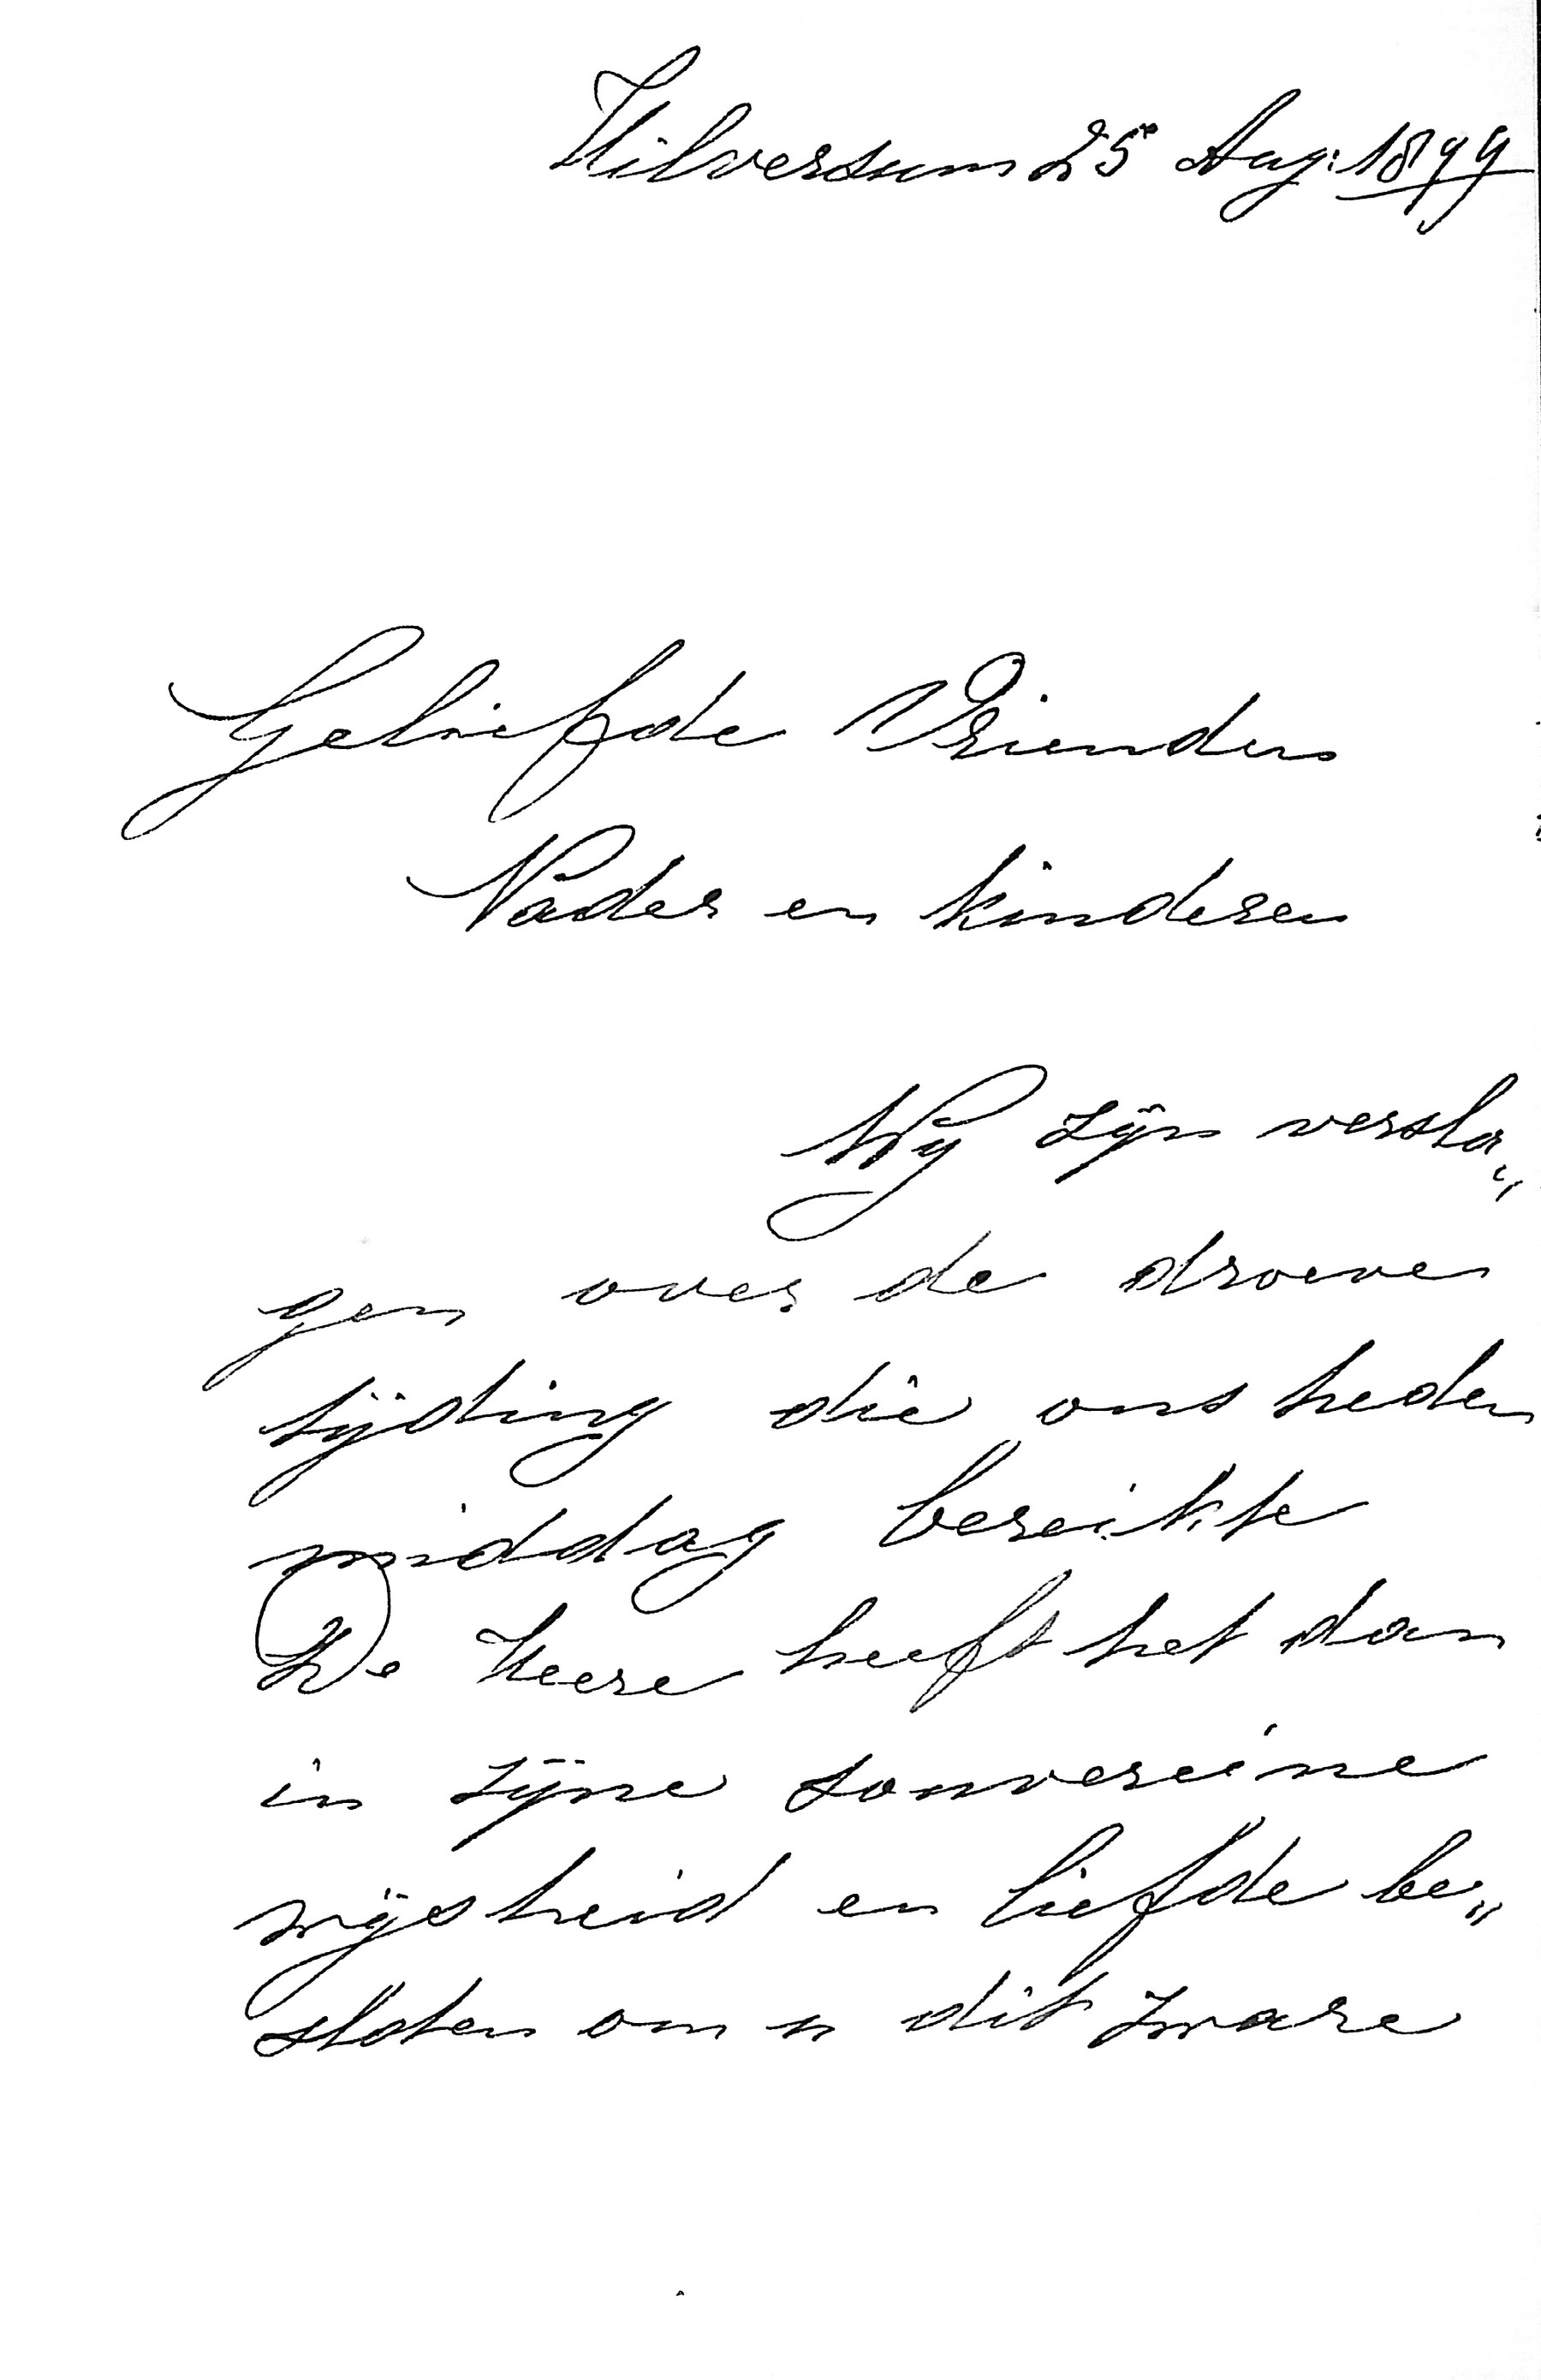 Hilversum 25 Aug: 1899
Geliefde Vrienden
Vader en kinderen
Wy zyn versla„
gen over de droeve
tijding die ons heden
middag bereikte
De Heere heeft het dan
in zijne souvereine
wijsheid en liefde be„
sloten om u dit zware